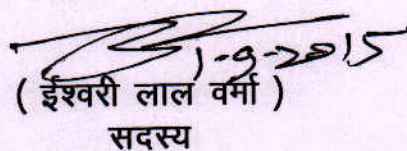 1-9-2015
( ईश्वरी लाल वर्मा )
सदस्य